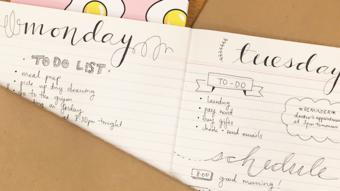 monday
TO DO LIST
• meal prep
• pick up dry cleaning
to the gym
friday
8:30pm tonight
tuesday
TO-DO
• laundry
• pay rent
• buy gifts
• check + send emails
*REMINDER*
doctor's appointment
at 3pm tomorrow
schedule
8:00 good morning!